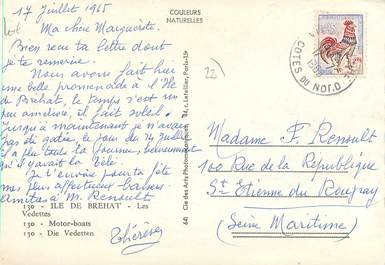 17 Juillet 1965
COULEURS
NATURELLES
Ma chère Marguerite.
Bien reçu ta lettre dont
je te remercie.
Nous avons fait hier
une belle promenade à l'Ile
de Bréhat, le temps s'est un
peu amélioré, il fait soleil.
jusqu'à maintenant je n'avais
pas été gâtée, le jour du 14 juillet
il a plu toute la journée, heureusement
qu'il y avait la télé.
Je t'envoie pour ta fête
mes plus affectueux baisers
Amitiés à M. Renoult
130 - ILE DE BREHAT - Les
Vedettes
130 - Motor-boats
130 - Die Vedetten
Thérèse
641 Cie des Arts Photomécaniques 44, r. Letellier, Paris-15e
22
COTES DU NORD
Madame F. Renoult
100 Rue de la République
St Etienne du Rouvray
(Seine Maritime)